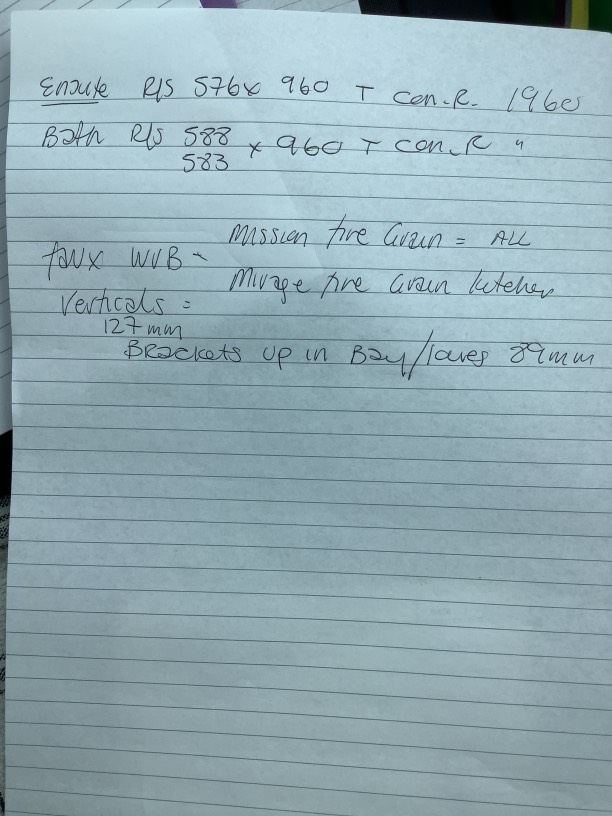 Ensuite R/S 576 x 960 T con.R. 1960
Bath R/S 588 x 960 T con.R "
583
Mission fine Grain = ALL
faux WVB -
Mirage fine Grain kitchen
Verticals =
127mm
BRackets up in Bay/ 89mm